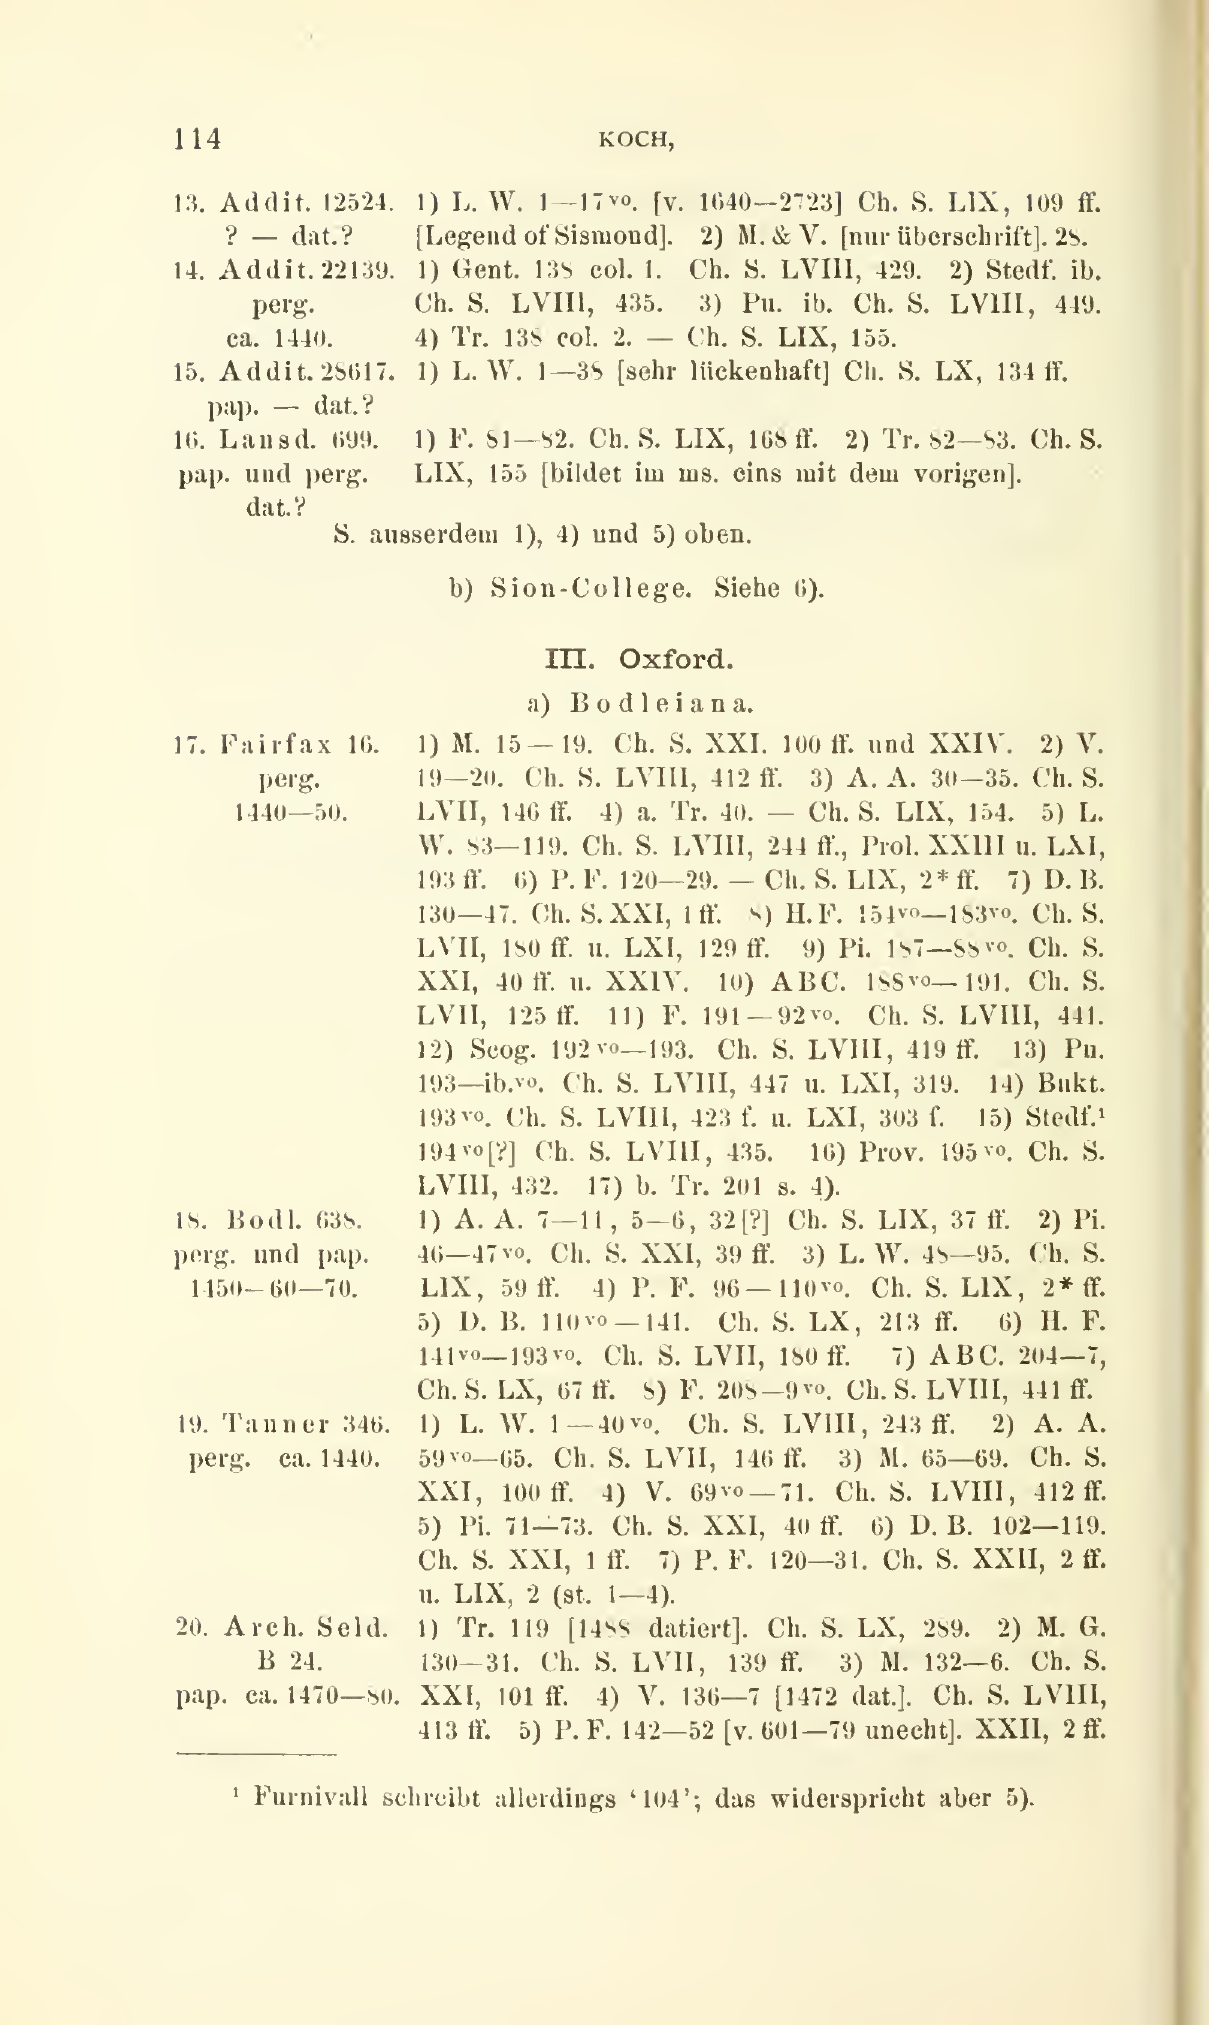 114 KOCH,
13. Addit. 12524. 1) L. W. 1—17vo. [v. 1640—2723] Ch. S. LIX, 109 ff.
? — dat.? [Legend of Sismond]. 2) M. & V. [nur überschrift]. 28.
14. Addit. 22139. 1) Gent. 138 col. 1. Ch. S. LVIII, 429. 2) Stedf. ib.
perg. Ch. S. LVIII, 435. 3) Pu. ib. Ch. S. LVIII, 449.
ca. 1440. 4) Tr. 138 col. 2. — Ch. S. LIX, 155.
15. Addit. 28617. 1) L. W. 1—38 [sehr lückenhaft] Ch. S. LX, 134 ff.
pap. — dat.?
16. Lansd. 699. 1) F. 81—82. Ch. S. LIX, 168 ff. 2) Tr. 82—83. Ch. S.
pap. und perg. LIX, 155 [bildet im ms. eins mit dem vorigen].
dat.?
S. ausserdem 1), 4) und 5) oben.
b) Sion-College. Siehe 6).
III. Oxford.
a) Bodleiana.
17. Fairfax 16. 1) M. 15—19. Ch. S. XXI. 100 ff. und XXIV. 2) V.
perg. 19—20. Ch. S. LVIII, 412 ff. 3) A. A. 30—35. Ch. S.
1440—50. LVII, 146 ff. 4) a. Tr. 40. — Ch. S. LIX, 154. 5) L.
W. 83—119. Ch. S. LVIII, 244 ff., Prol. XXIII u. LXI,
193 ff. 6) P. F. 120—29. — Ch. S. LIX, 2* ff. 7) D. B.
130—47. Ch. S. XXI, 1 ff. 8) H. F. 154vo—183vo. Ch. S.
LVII, 180 ff. u. LXI, 129 ff. 9) Pi. 187—88vo. Ch. S.
XXI, 40 ff. u. XXIV. 10) ABC. 188vo—191. Ch. S.
LVII, 125 ff. 11) F. 191—92vo. Ch. S. LVIII, 441.
12) Scog. 192vo—193. Ch. S. LVIII, 419 ff. 13) Pu.
193—ib.vo. Ch. S. LVIII, 447 u. LXI, 319. 14) Bukt.
193vo. Ch. S. LVIII, 423 f. u. LXI, 303 f. 15) Stedf.¹
194vo[?] Ch. S. LVIII, 435. 16) Prov. 195vo. Ch. S.
LVIII, 432. 17) b. Tr. 201 s. 4).
18. Bodl. 638. 1) A. A. 7—11, 5—6, 32[?] Ch. S. LIX, 37 ff. 2) Pi.
perg. und pap. 46—47vo. Ch. S. XXI, 39 ff. 3) L. W. 48—95. Ch. S.
1450—60—70. LIX, 59 ff. 4) P. F. 96—110vo. Ch. S. LIX, 2* ff.
5) D. B. 110vo—141. Ch. S. LX, 213 ff. 6) H. F.
141vo—193vo. Ch. S. LVII, 180 ff. 7) ABC. 204—7,
Ch. S. LX, 67 ff. 8) F. 208—9vo. Ch. S. LVIII, 441 ff.
19. Tanner 346. 1) L. W. 1—40vo. Ch. S. LVIII, 243 ff. 2) A. A.
perg. ca. 1440. 59vo—65. Ch. S. LVII, 146 ff. 3) M. 65—69. Ch. S.
XXI, 100 ff. 4) V. 69vo—71. Ch. S. LVIII, 412 ff.
5) Pi. 71—73. Ch. S. XXI, 40 ff. 6) D. B. 102—119.
Ch. S. XXI, 1 ff. 7) P. F. 120—31. Ch. S. XXII, 2 ff.
u. LIX, 2 (st. 1—4).
20. Arch. Seld. 1) Tr. 119 [1488 datiert]. Ch. S. LX, 289. 2) M. G.
B 24. 130—31. Ch. S. LVII, 139 ff. 3) M. 132—6. Ch. S.
pap. ca. 1470—80. XXI, 101 ff. 4) V. 136—7 [1472 dat.]. Ch. S. LVIII,
413 ff. 5) P. F. 142—52 [v. 601—79 unecht]. XXII, 2 ff.
¹ Furnivall schreibt allerdings ‘104’; das widerspricht aber 5).